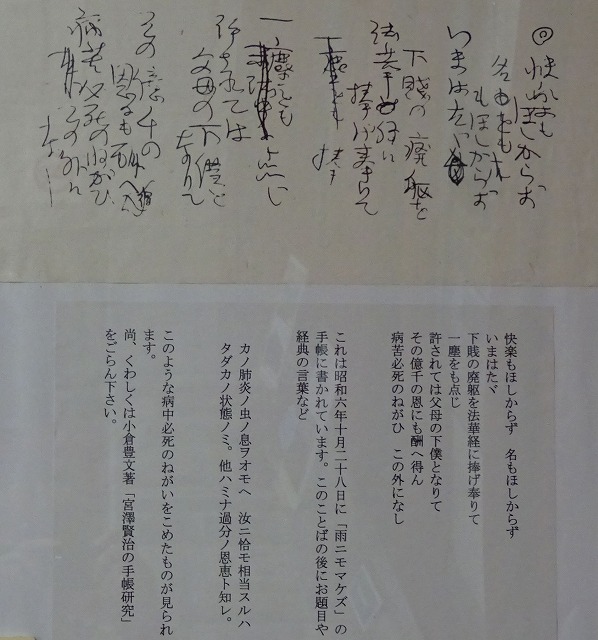 ◎快楽も
ほしからず
名も
ほしからず
いまはたゞ
下賤の廃躯を
法華経に
捧げ奉りて
一塵をも点じ
許されては
父母の下僕と
なりて
その億千の
恩にも酬へ得ん
病苦必死のねがひ
この外に
なし
快楽もほしからず 名もほしからず
いまはたゞ
下賤の廃躯を法華経に捧げ奉りて
一塵をも点じ
許されては父母の下僕となりて
その億千の恩にも酬へ得ん
病苦必死のねがひ この外になし
これは昭和六年十月二十八日に「雨ニモマケズ」の
手帳に書かれています。このことばの後にお題目や
経典の言葉など
カノ肺炎ノ虫ノ息ヲオモヘ 汝ニ恰モ相当スルハ
タダカノ状態ノミ。他ハミナ過分ノ恩恵ト知レ。
このような病中必死のねがいをこめたものが見られ
ます。
尚、くわしくは小倉豊文著「宮澤賢治の手帳研究」
をごらん下さい。